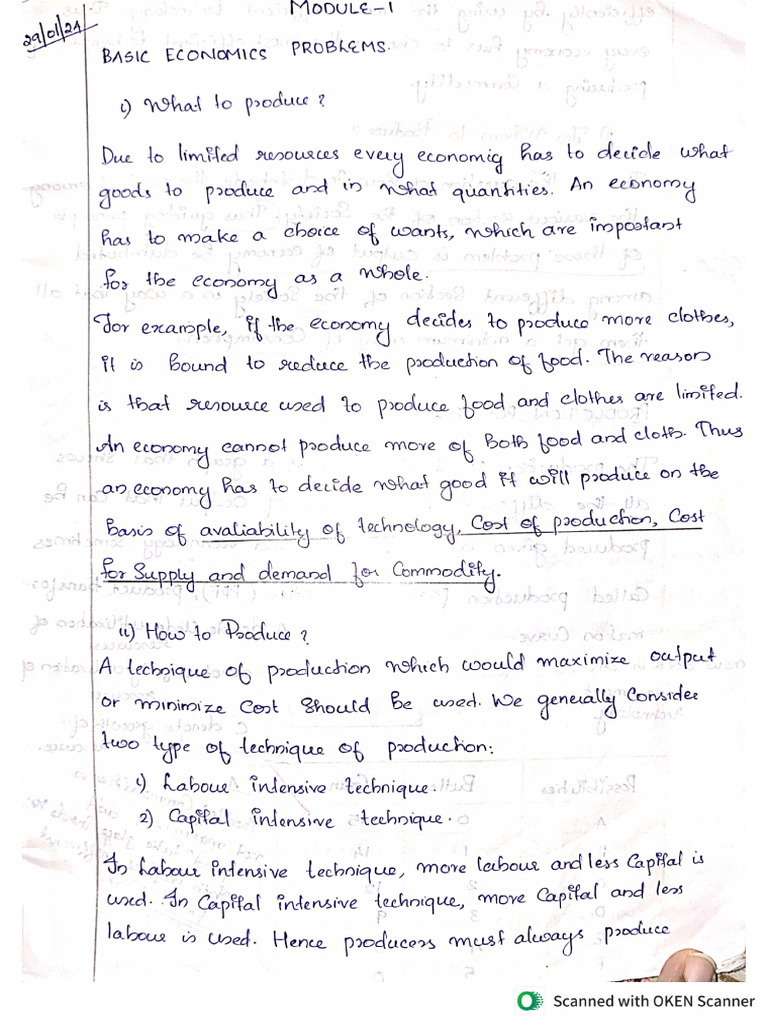 MODULE-1
29/01/24
BASIC ECONOMICS PROBLEMS.
i) What to produce?
Due to limited resources every economig has to decide what
goods to produce and in what quantities. An economy
has to make a choice of wants, which are important
for the economy as a whole.
For example, if the economy decides to produce more clothes,
it is bound to reduce the production of food. The reason
is that resource used to produce food and clothes are limited.
An economy cannot produce more of Both food and cloth. Thus
an economy has to decide what good it will produce on the
Basis of avaliability of technology, Cost of production, Cost
for Supply and demand for Commodity.
ii) How to Produce?
A technique of production which would maximize output
or minimize cost should be used. We generally Consider
two type of technique of production:
1) Labour intensive technique.
2) Capital intensive technique.
In Labour intensive technique, more labour and less Capital is
used. In Capital intensive technique, more Capital and less
labour is used. Hence producers must always produce
Scanned with OKEN Scanner